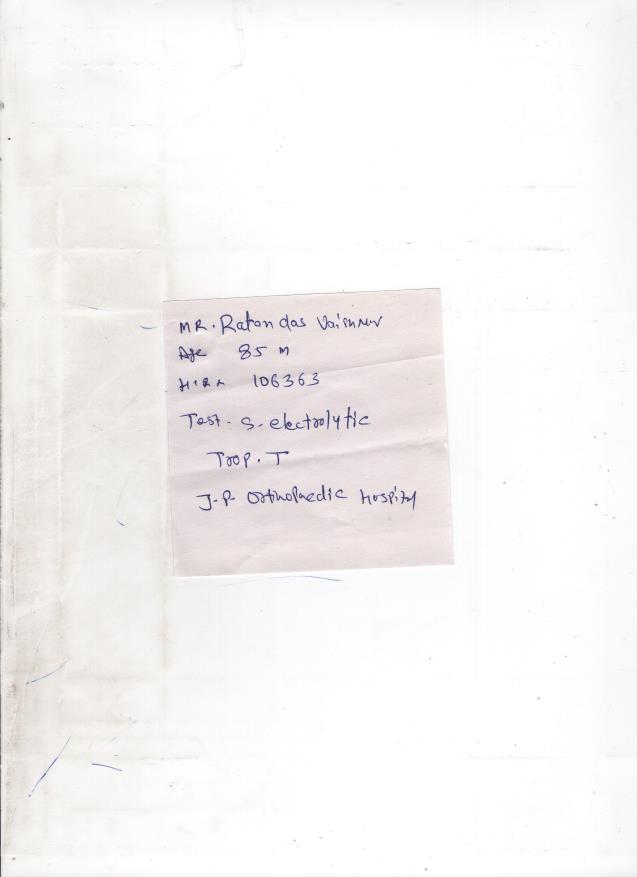 MR. Ratan das Vaisnav
Age 85 M
106363
Test - S. electrolytic
Trop. T
J.P. Orthopaedic Hospital